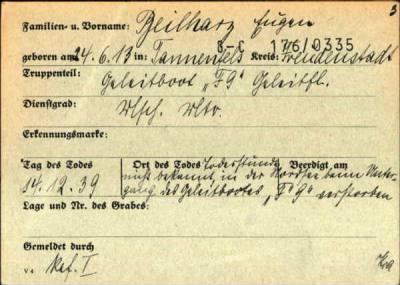 3
Familien- u. Vorname: Beilharz Eugen
B-C 176/0335
geboren am 24.6.13 in: Tannenfels Kreis: Freudenstadt
Truppenteil:
Geleitboot „F9" Geleitfl.
Dienstgrad:
Erkennungsmarke:
Tag des Todes Ort des Todes Todesstunde Beerdigt am
14.12.39 bekannt, in der Nordsee beim Unter-
gang des Geleitbootes „F9" verstorben
Lage und Nr. des Grabes:
Gemeldet durch
v. Ref. I